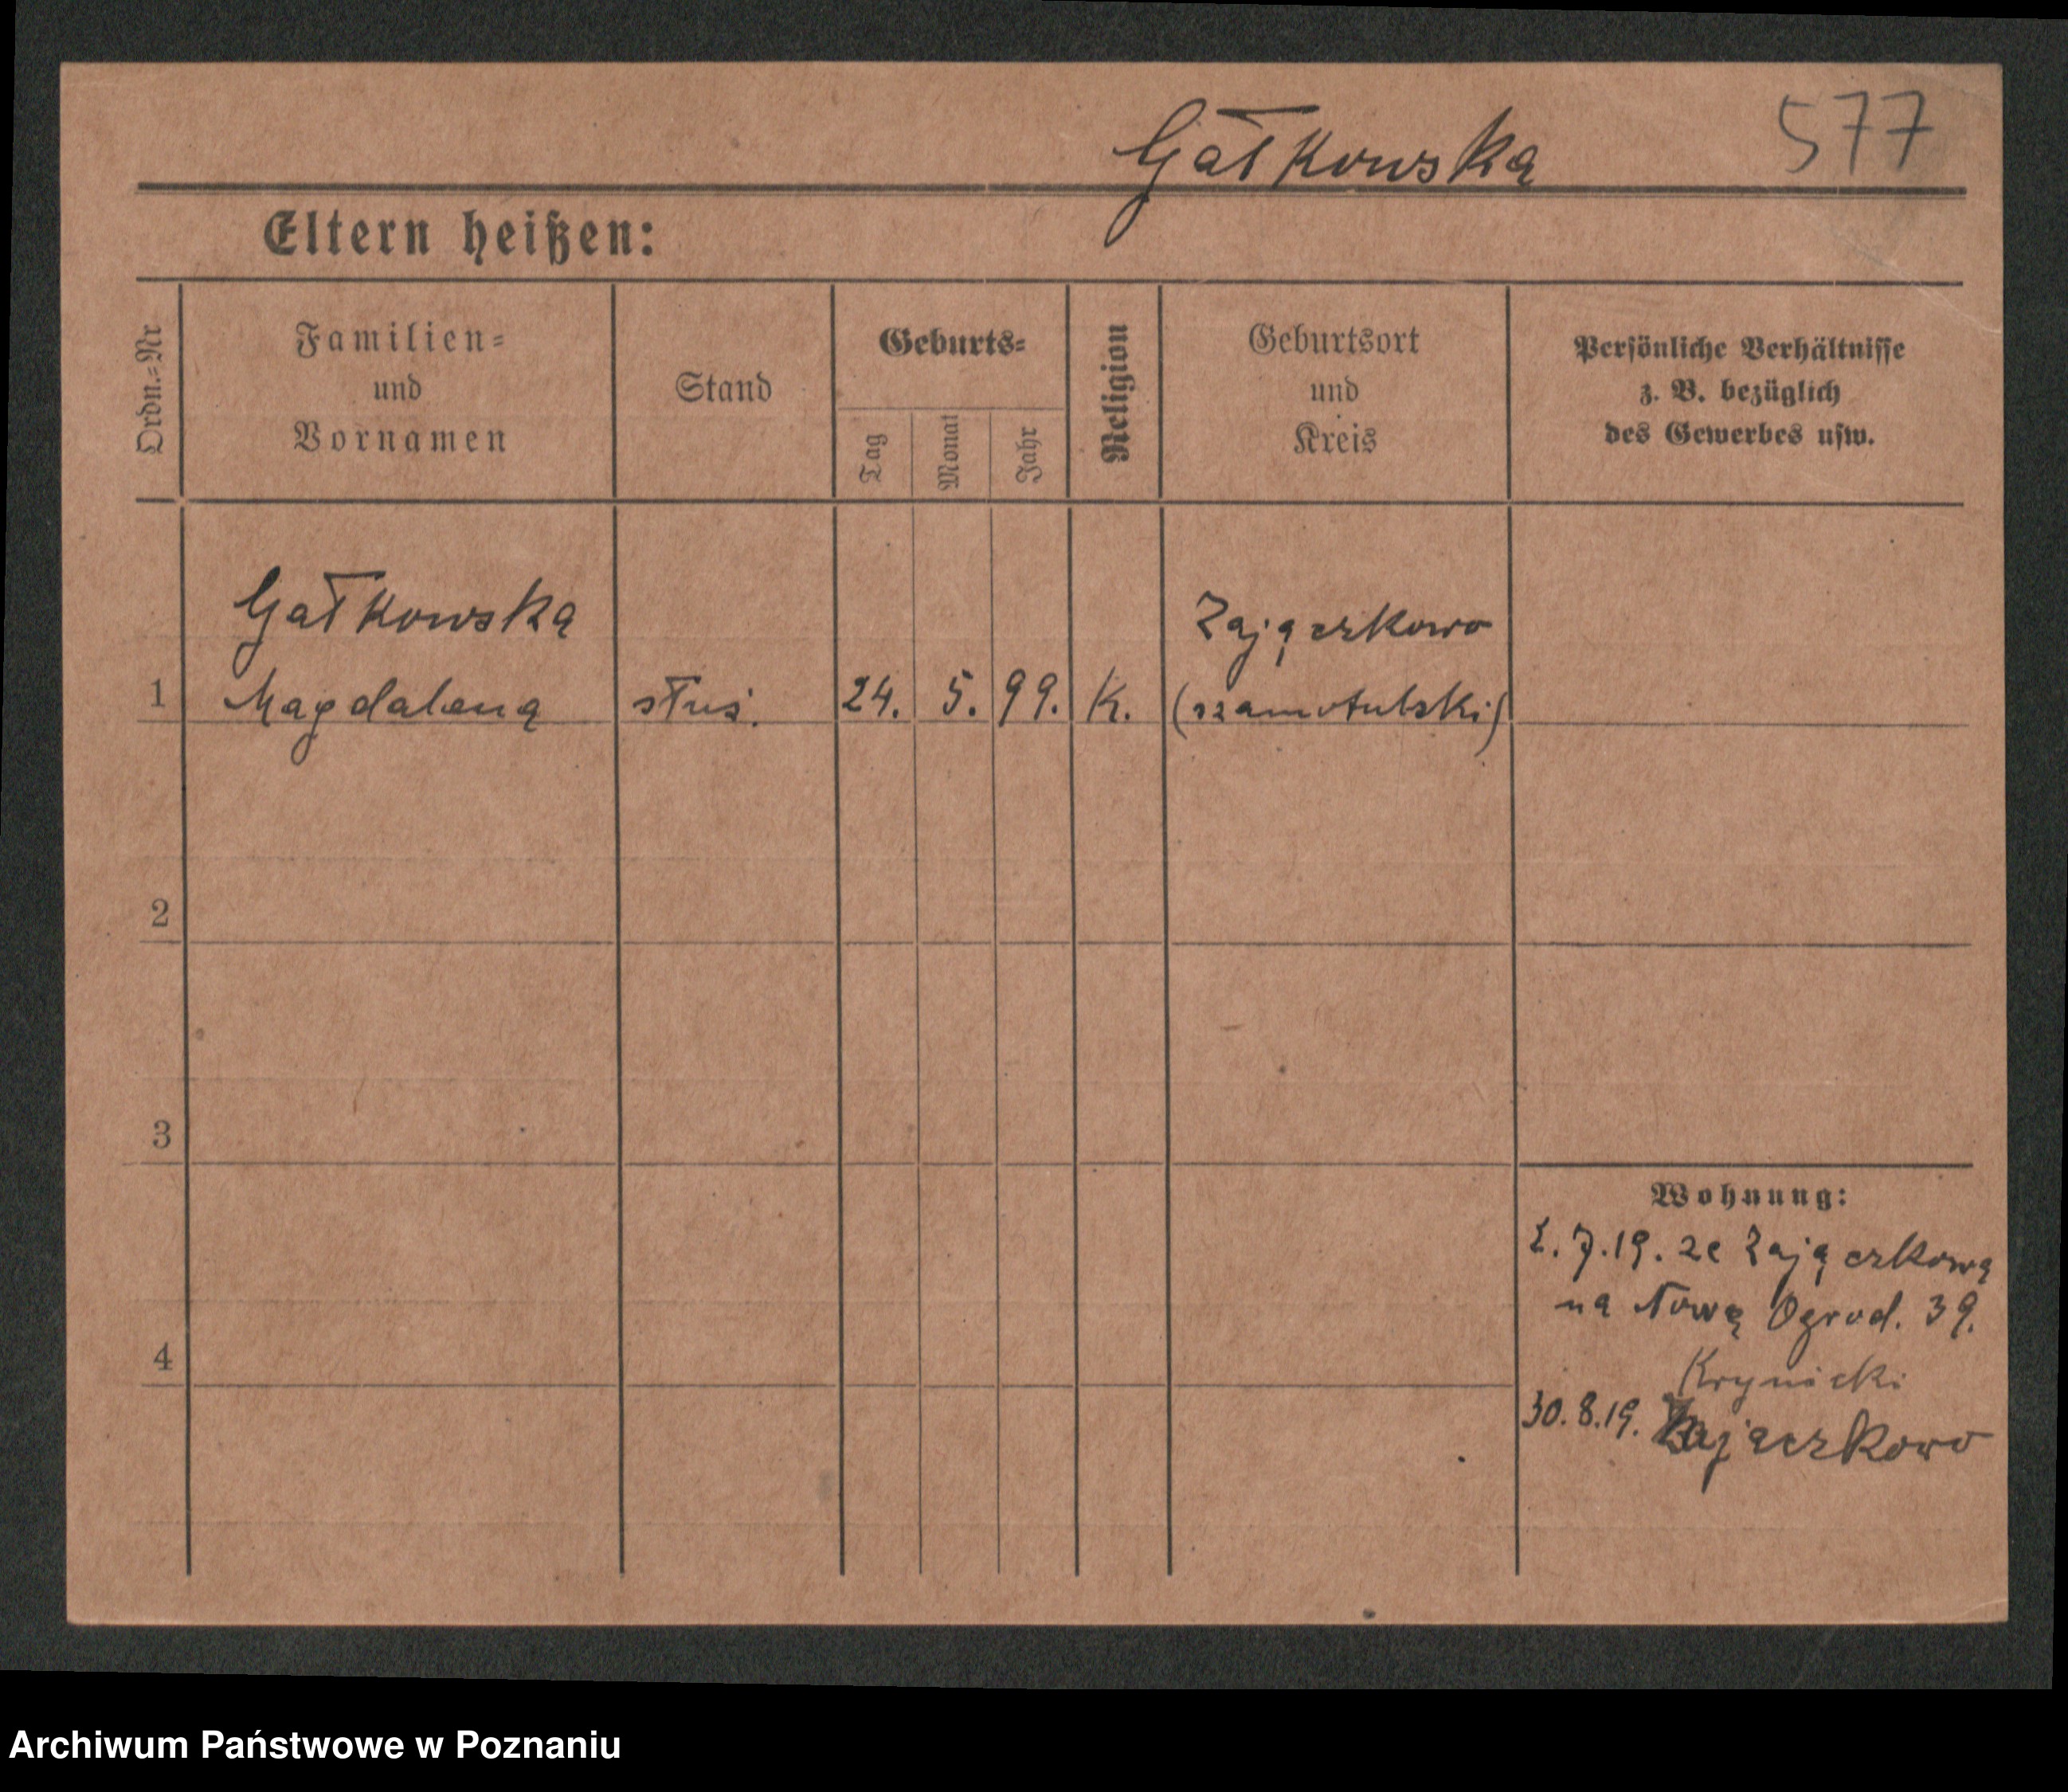 Gałkowska 577
Eltern heißen:
Ordn.-Nr
Familien-
und
Vornamen
Stand
Geburts-
Tag
Monat
Jahr
Religion
Geburtsort
und
Kreis
Persönliche Verhältnisse
z. B. bezüglich
des Gewerbes usw.
Gałkowska Zajączkowo
1 Magdalena służ. 24. 5. 99. K. (szamotulski)
2
3
Wohnung:
7.19. ze Zajączkowa
na Nową Ogrod. 39.
4
Krynicki
30.8.19. Zajączkowo
Archiwum Państwowe w Poznaniu